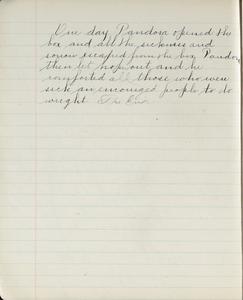 One day Pandora opened the
box and all the sickness and
sorrow escaped from the box Pandora
then let hope out and he
comforted all those who were
sick an encouraged people to do
wright The End